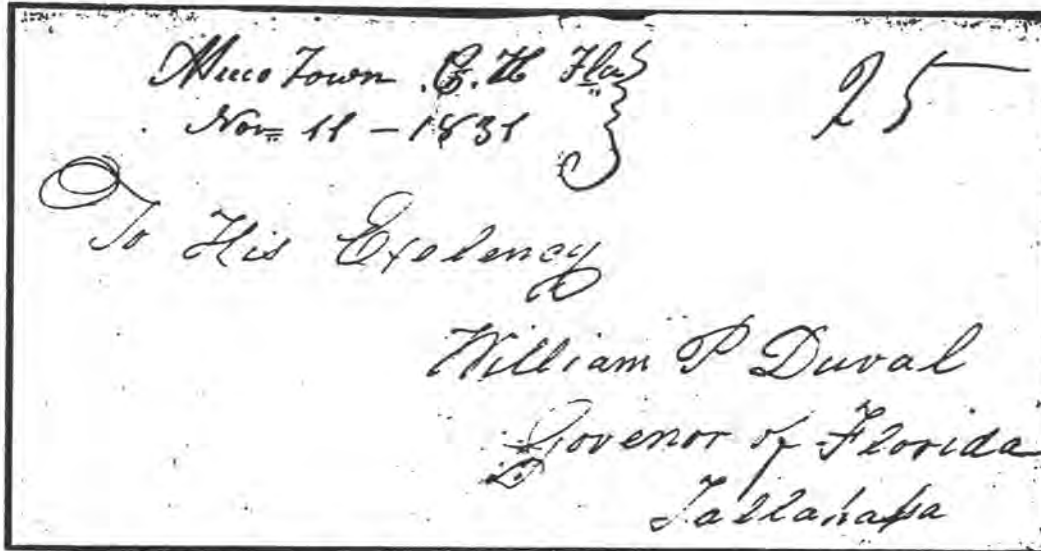 Town C. H Fla
Nov 11 – 1831
25
To His Exelency
William P Duval
Govenor of Florida
Tallahassa